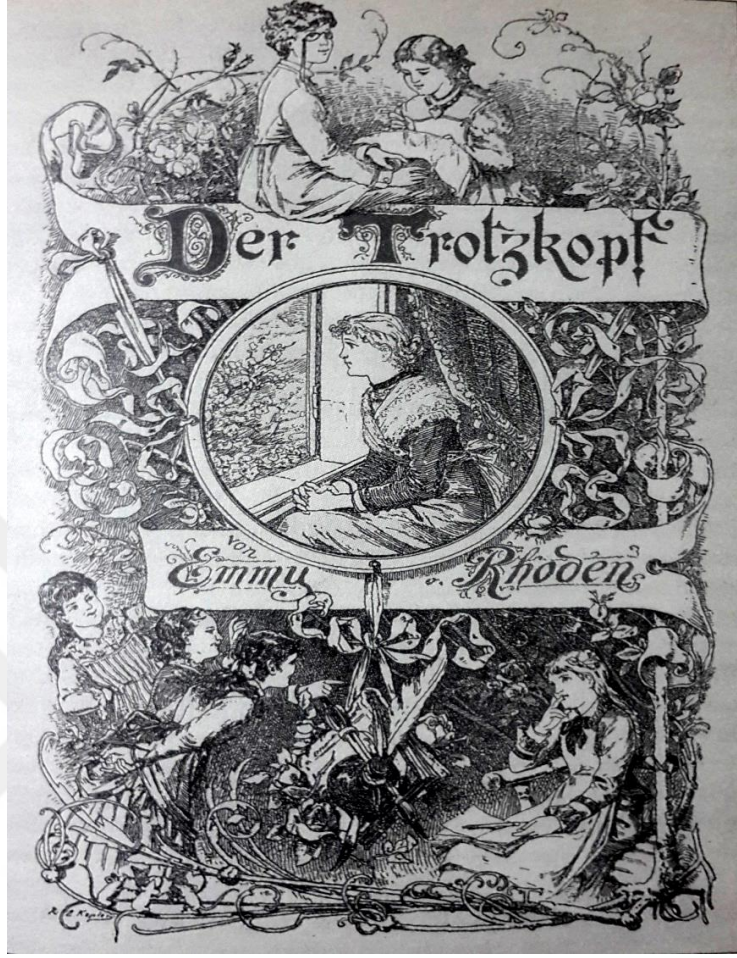 Der Trotzkopf
von
Emmy v. Rhoden